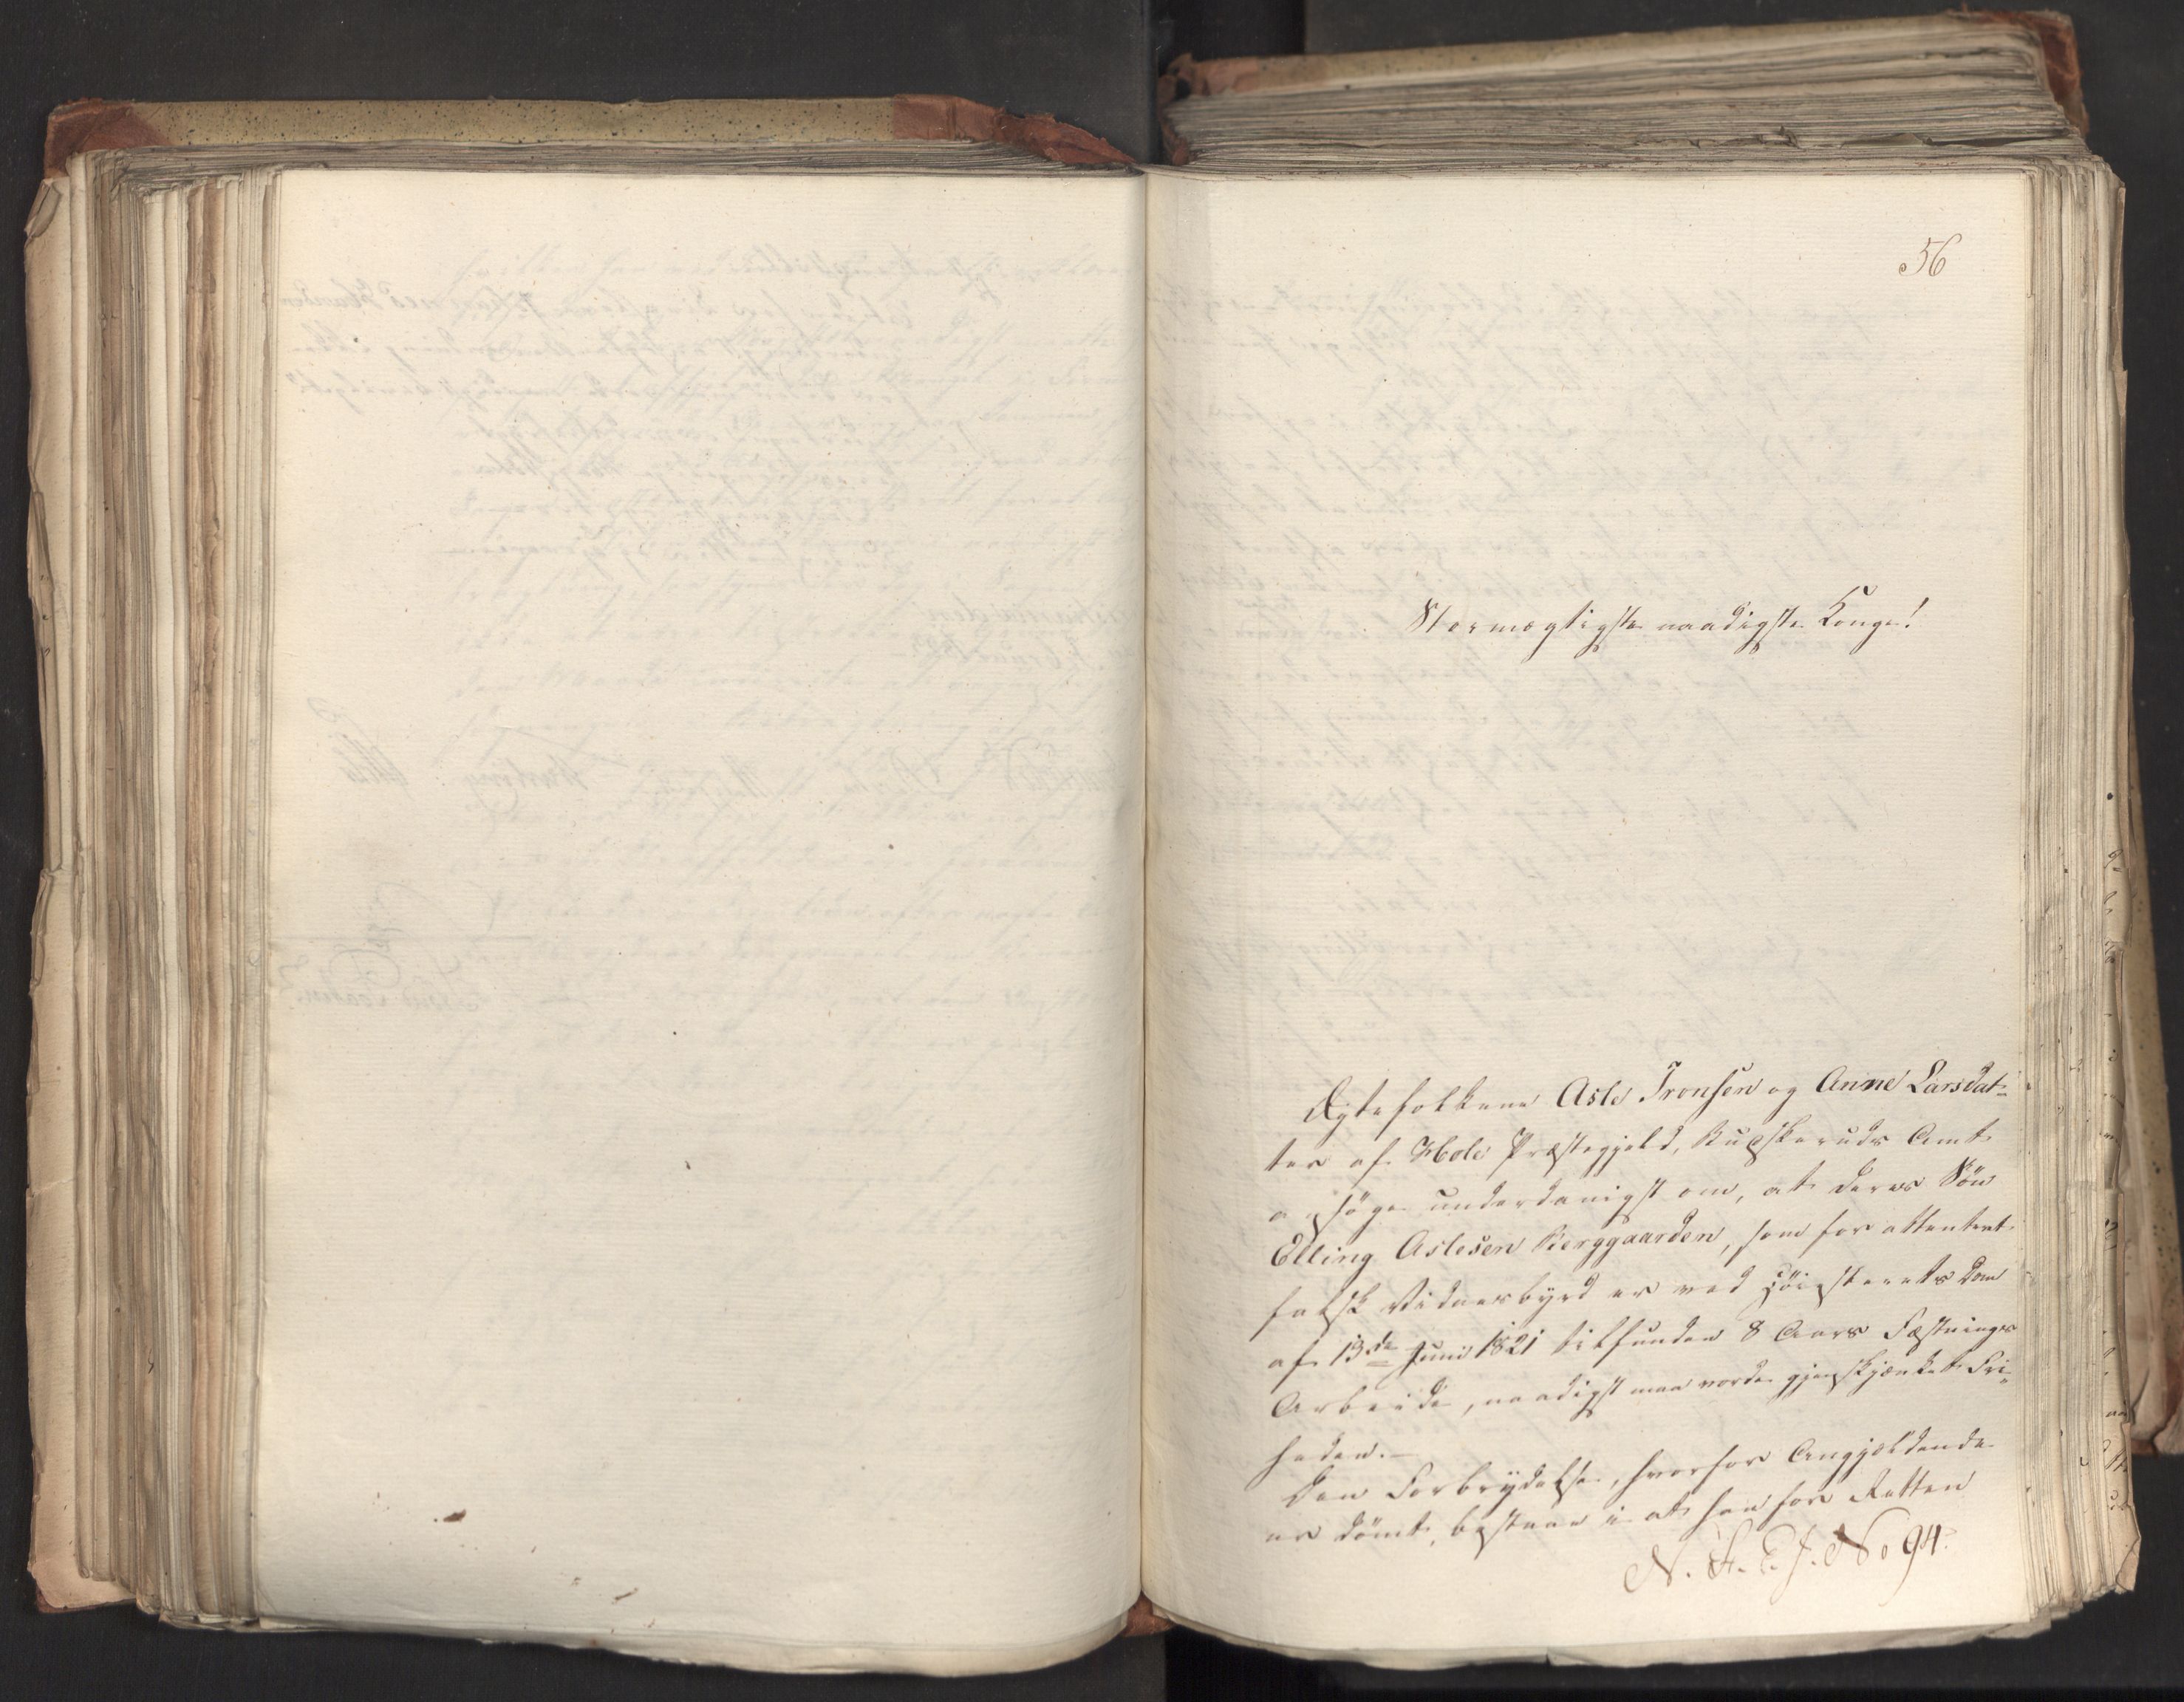 56
Stormægtigste naadigste Konge!
Ægtefolkene Asle Tronsen og Anne Larsdat-
ter af Hole Præstegjeld, Buskeruds Amt
ansøge underdanigst om, at deres Søn
Elling Aslesen Berggaarden, som for attenteret
falsk Vidnesbyrd er ved Høiesterets Dom
af 13de Juni 1821 tilfunden 8 Aars Fæstnings
Arbeide, naadigst maa vorde gjenskjænket Fri-
heden.-
Den Forbrydelse, hvorfor Angjældende
er dømt, bestaaer i at han for Retten
N. F. E. J. No 94.